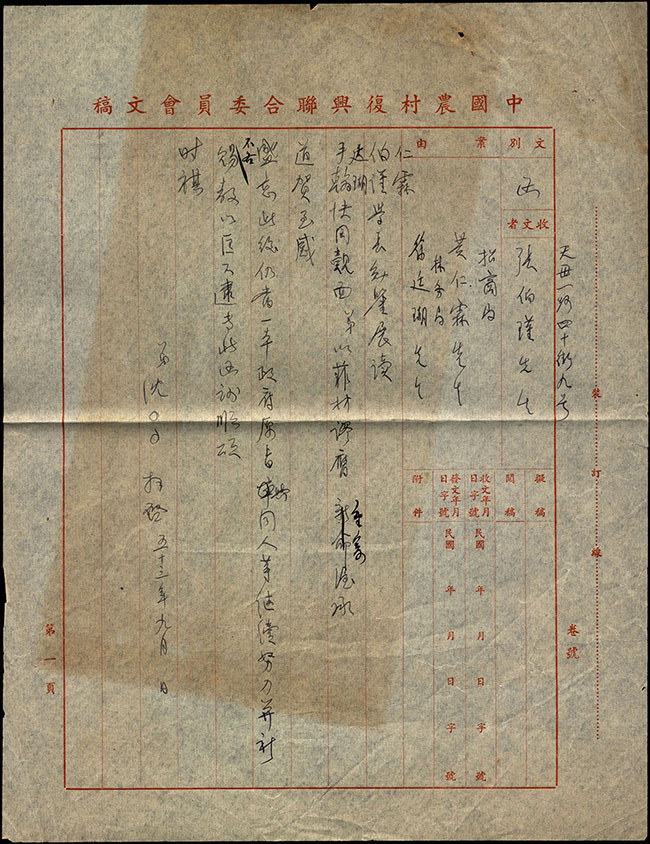 中國農村復興聯合委員會文稿
文別
函
收文者
天母一路四十街九号
張伯瑾先生
招商局
黃仁霖先生
林務局
先生
案由
擬稿
閱稿
收文年月日字號
發文年月日字號
附件
民國 年 月 日 字 號
民國 年 月 日 字 號
仁霖
伯瑾學長勛鑒展讀
手翰快同覿面弟以菲材謬膺
重寄
道賀至感
盛意此後仍當一本政府原旨
同人等繼續努力并祈
不吝
錫教以匡不逮專此函謝順頌
时祺
弟沈○○拜啓 五十三年九月 日
裝 訂 線
卷號
第一頁